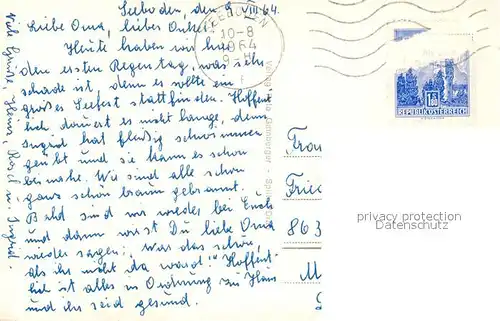 Seeboden, den 9. VIII. 64.
Liebe Oma, lieber Onkel!
Heute haben wir hier
den ersten Regentag, was sehr
schade ist, denn es sollte ein
großes Seefest stattfinden. Hoffent-
lich dauert es nicht lange, denn
Ingrid hat fleißig schwimmen
geübt und sie kann es schon
beinahe. Wir sind alle schon
ganz schön braun gebrannt.
Bald sind wir wieder bei Euch
und dann wirst Du liebe Oma
wieder sagen: "War das schön,
als ihr nicht da ward!" Hoffent-
lich ist alles in Ordnung im Haus
und ihr seid gesund.
Viele Grüße, Heinz, Rosl u. Ingrid.
SEEBODEN
10-8
1964
9-H
REPUBLIK ÖSTERREICH
Frau
Frie
863
M
privacy protection
Dateiname